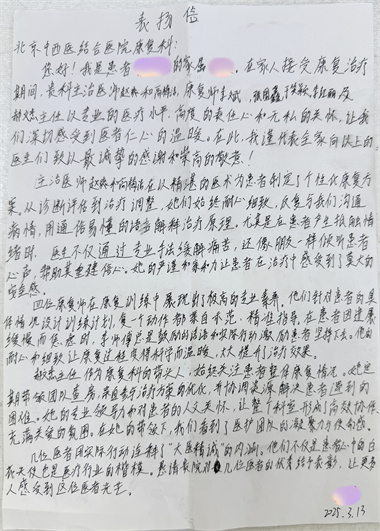 表扬信
北京中西医结合医院康复科:
您好!我是患者 的家属 ,在家人接受康复治疗
期间,贵科主治医师赵 和尚 ,康复师李斌,
赵 主任以专业的医疗水平,高度的责任心和无私的关怀,让我
们深切感受到医者仁心的温暖。在此,我谨代表全家向以上的
医生们致以最诚挚的感谢和崇高的敬意!
主治医师赵 和尚 在以精湛的医术为患者制定了个性化康复方
案。从诊断评估到治疗调整,她们始终耐心细致,反复与我们沟通
病情,用通俗易懂的语言解释治疗原理。尤其是在患者产生抵触情
绪时,医生不仅通过专业手法缓解痛苦,还像朋友一样倾听患者
心声,帮助其重建信心。她的严谨和亲和力让患者在治疗中感受到了莫大的
安全感。
四位康复师在康复训练中展现了极高的专业素养,他们针对患者的具
体情况设计训练计划,每一个动作都亲自示范、精准指导,在患者因进展
缓慢而焦虑时,李 总是鼓励的话语和实际行动激励患者坚持下去。他的
耐心和细致让康复过程变得科学而温暖,大大提升了治疗效果。
赵 主任作为康复科的带头人,始终关注患者整体康复情况。她定
期带领团队查房,亲自参与治疗方案的优化,并协调资源解决患者遇到的
困难。她的专业领导力和对患者的人文关怀,让整个科室形成了高效协作、
充满关爱的氛围。在她的带领下,我们看到了医护团队的凝聚力与使命感。
几位医者用实际行动诠释了“大医精诚”的内涵。他们不仅是患者心中的白
衣天使也是医疗行业的楷模。恳请贵院对几位医者的优秀给予表彰,让更多
人感受到这份医者光芒。
2025.3.13